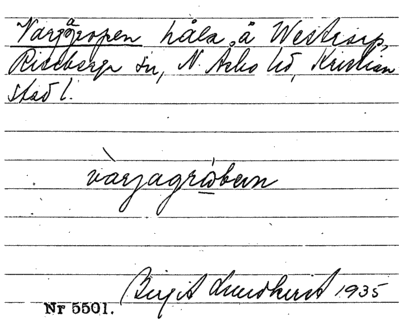 Vargagropen håla å Westrarp,
Riseberga sn, N. Åsbo hd, Kristian
stad l.
vàrjagrωbεn
Birgit Lundkvist 1935
Nr 5501.